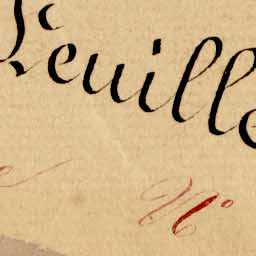 Feuille
N°